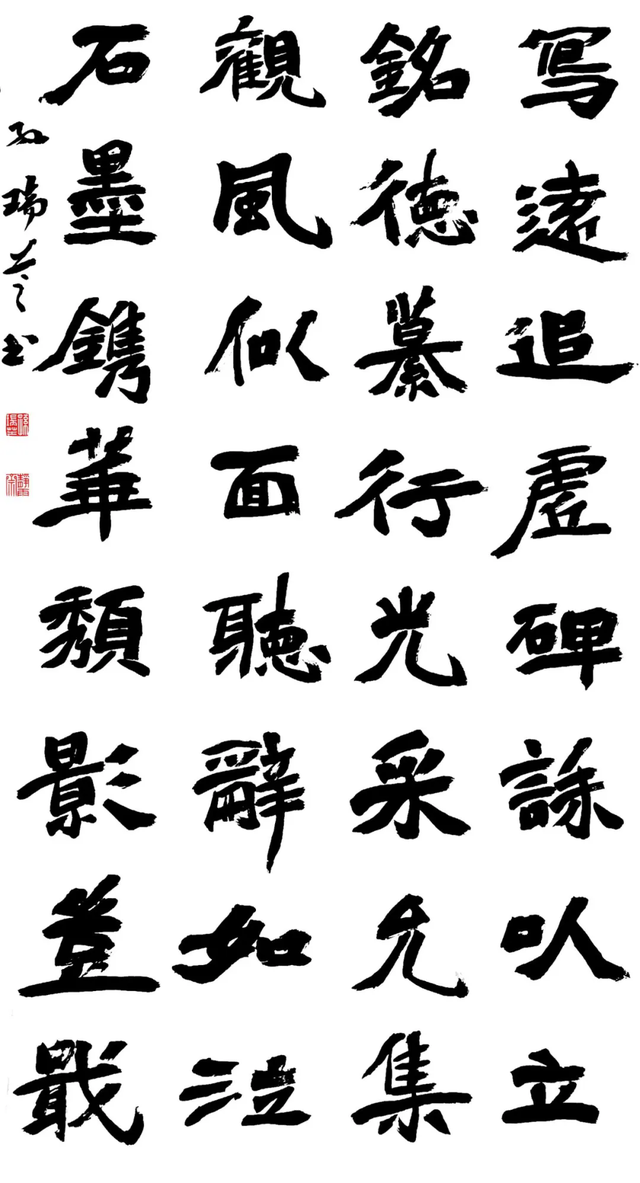 寫遠追虛碑誄以立
銘德纂行光采允集
觀風似面聽辭如泣
石墨鐫華頹影豈戢
孙瑞芝书